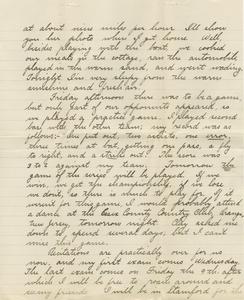 at about nine mile per hour. I'll show
you her photo when I get home. Well,
besides playing with the boat, we cooked
our meals in the cottage, ran the automobile,
played in the warm sand, and went wading.
Tonight I'm very sleepy from the warm
sunshine and fresh air.
Friday afternoon there was to be a game
but only part of our opponents appeared, so
we played a practice game. I played second
base with the other team; my record was as
follows:- one put out, two assists, one error,
three times at bat, getting one pass, a fly
to right, and a strike out. The score was
3 to 2 against my team. Tomorrow the
game of the series will be played. If
we win, we get the championship, if we lose
we don't, so there is much to play for. If it
weren't for this game, I would probably attend
a dance at the Essex County Country Club, Orange,
New Jersey, tomorrow night. They asked me
down to spend several days, but I can't
miss this game.
Recitations are practically over for us
now, and my first exam comes Wednesday.
The last exam comes on Friday the 9th after
which I will be free to roam around and
I will be in Stamford for the